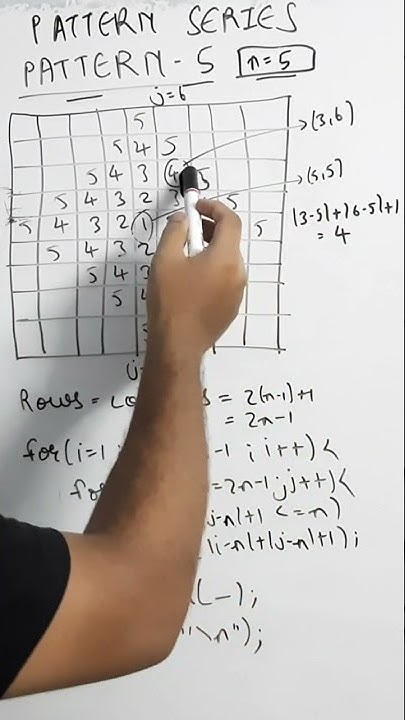 PATTERN SERIES
PATTERN - 5 n=5
j=6
5
5 4 5
5 4 3 4 5 (3,6)
5 4 3 2 3 5 (5,5)
5 4 3 2 1 5 |3-5|+|6-5|+1
5 4 3 2 = 4
5 4 3
5 4
5
Rows = = 2(n-1)+1
= 2n-1
for(i=1 -1 ; i++) <
=2n-1; j++) <
j-n|+1 <=n)
|i-n|+|j-n|+1);
(-);
"\n");